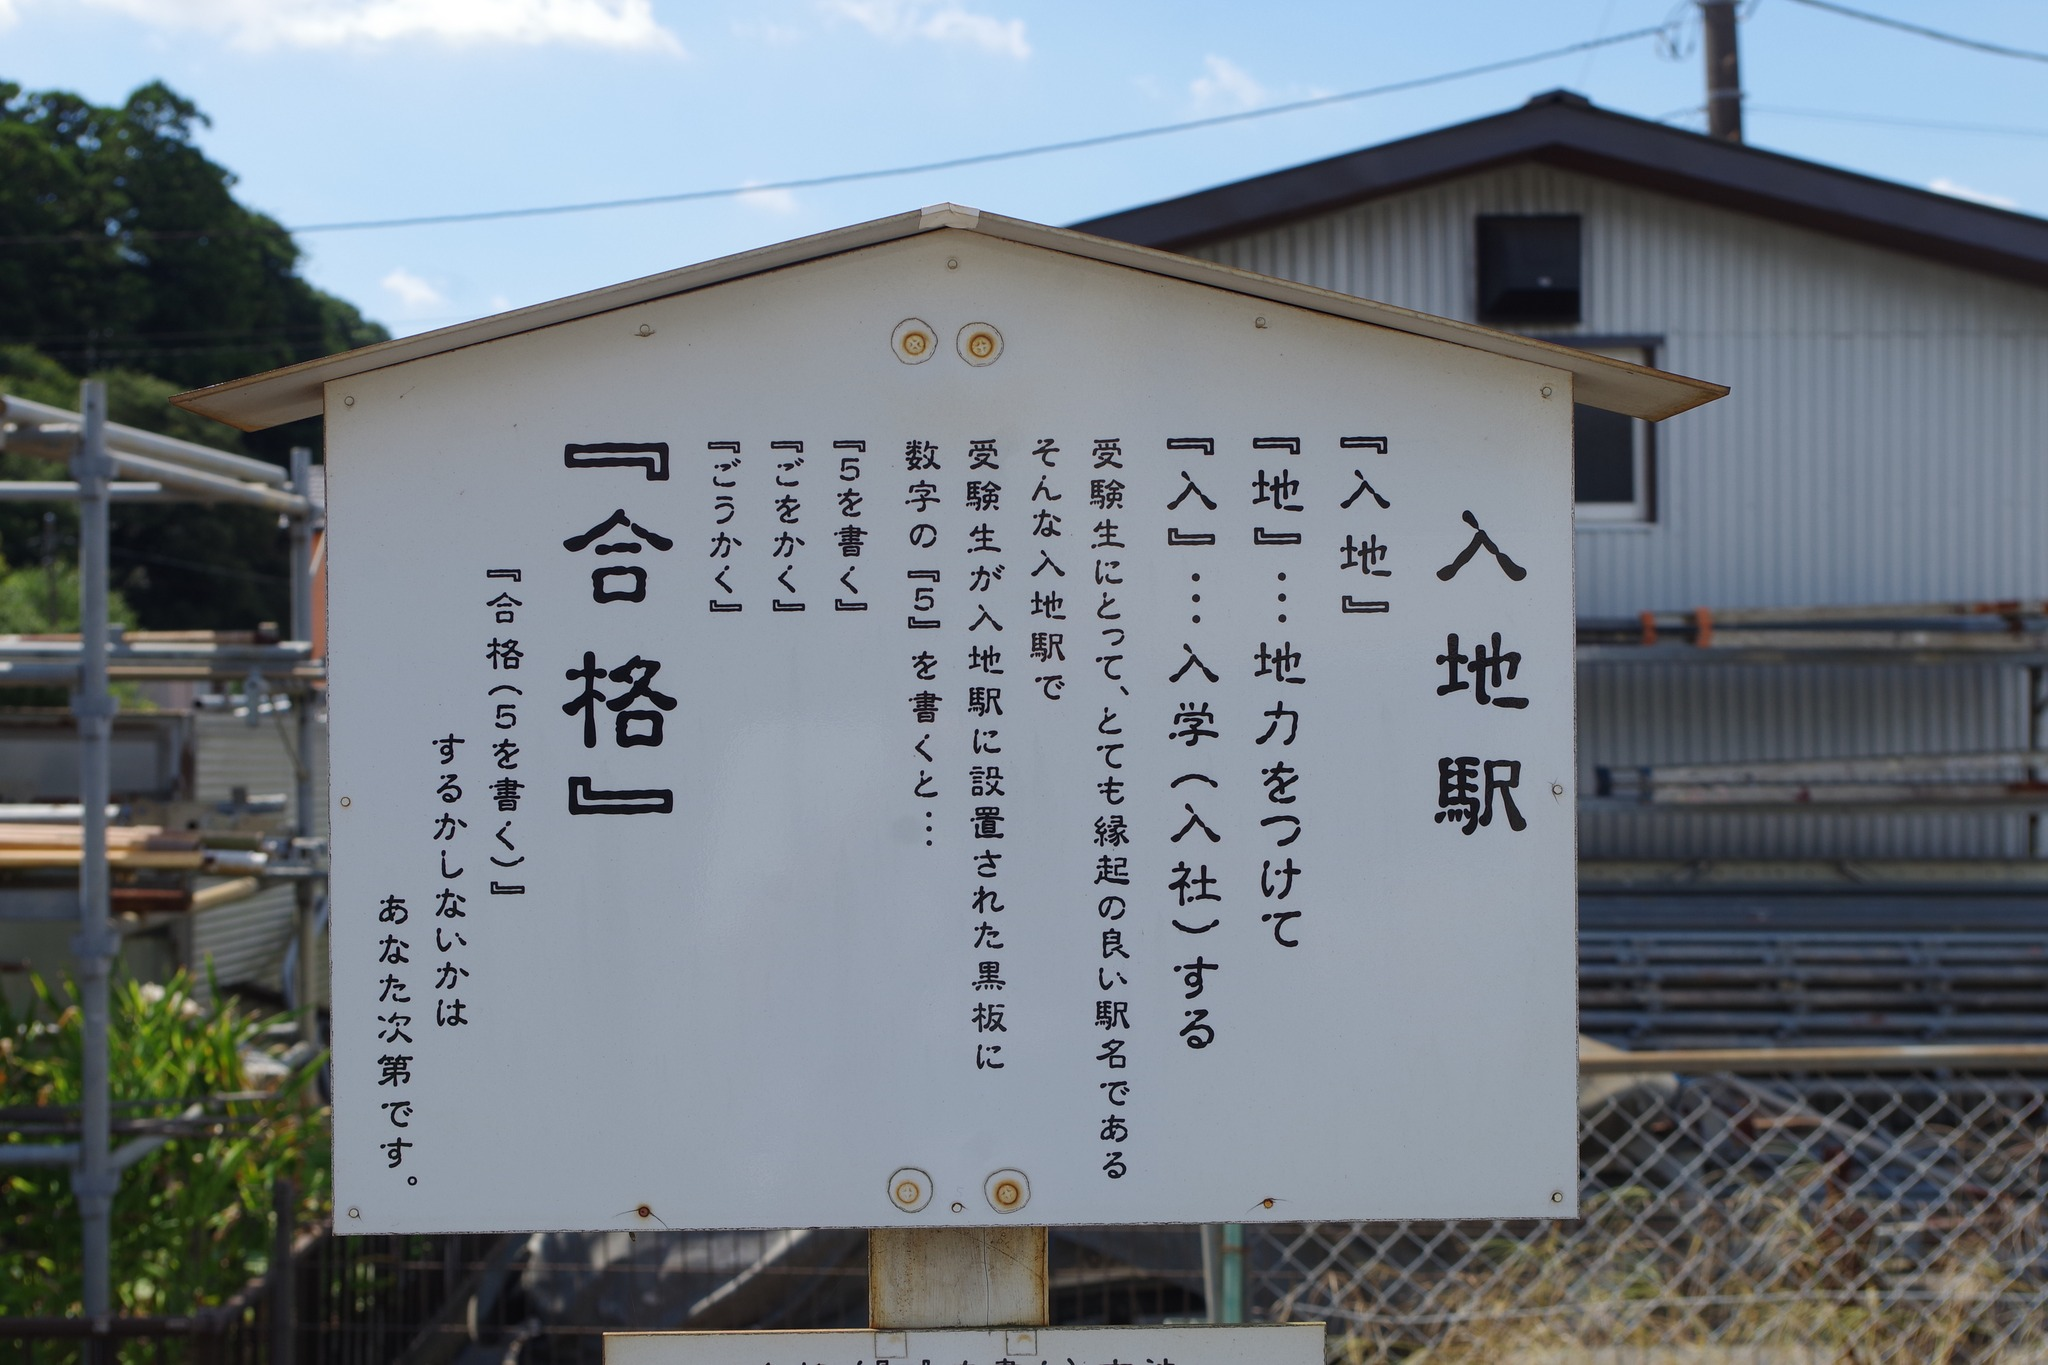 入地駅
『入地』
『地』…地力をつけて
『入』…入学(入社)する
受験生にとって、とても縁起の良い駅名である
そんな入地駅で
受験生が入地駅に設置された黒板に
数字の『5』を書くと…
『5を書く』
『ごをかく』
『ごうかく』
『合格』
『合格(5を書く)』
するかしないかは
あなた次第です。